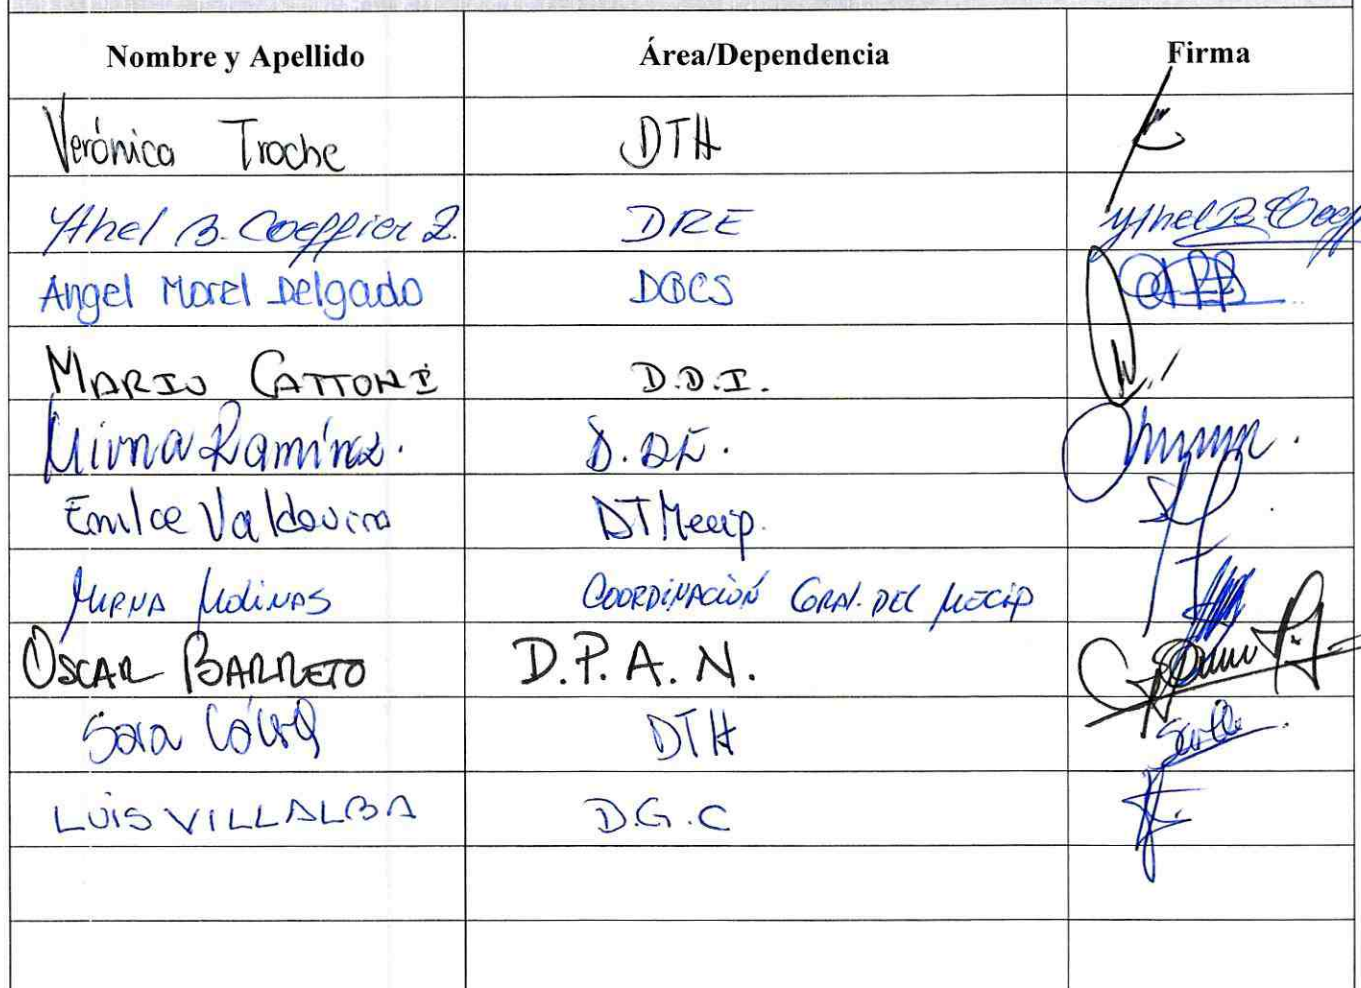 Nombre y Apellido Área/Dependencia Firma
Verónica Troche DTH
Ythel B. Coeffier Z. DRE Ythel B. Coeff
Angel Morel Delgado DGCS
MARIO CATTONI D.D.I.
Mirna Ramírez. D.DE.
Emilce Valdovino DTMecip.
MIRNA MOLINAS COORDINACIÓN GRAL. DEL MECIP
OSCAR BARRETO D.P.A.N.
Sara DTH
LUIS VILLALBA D.G.C